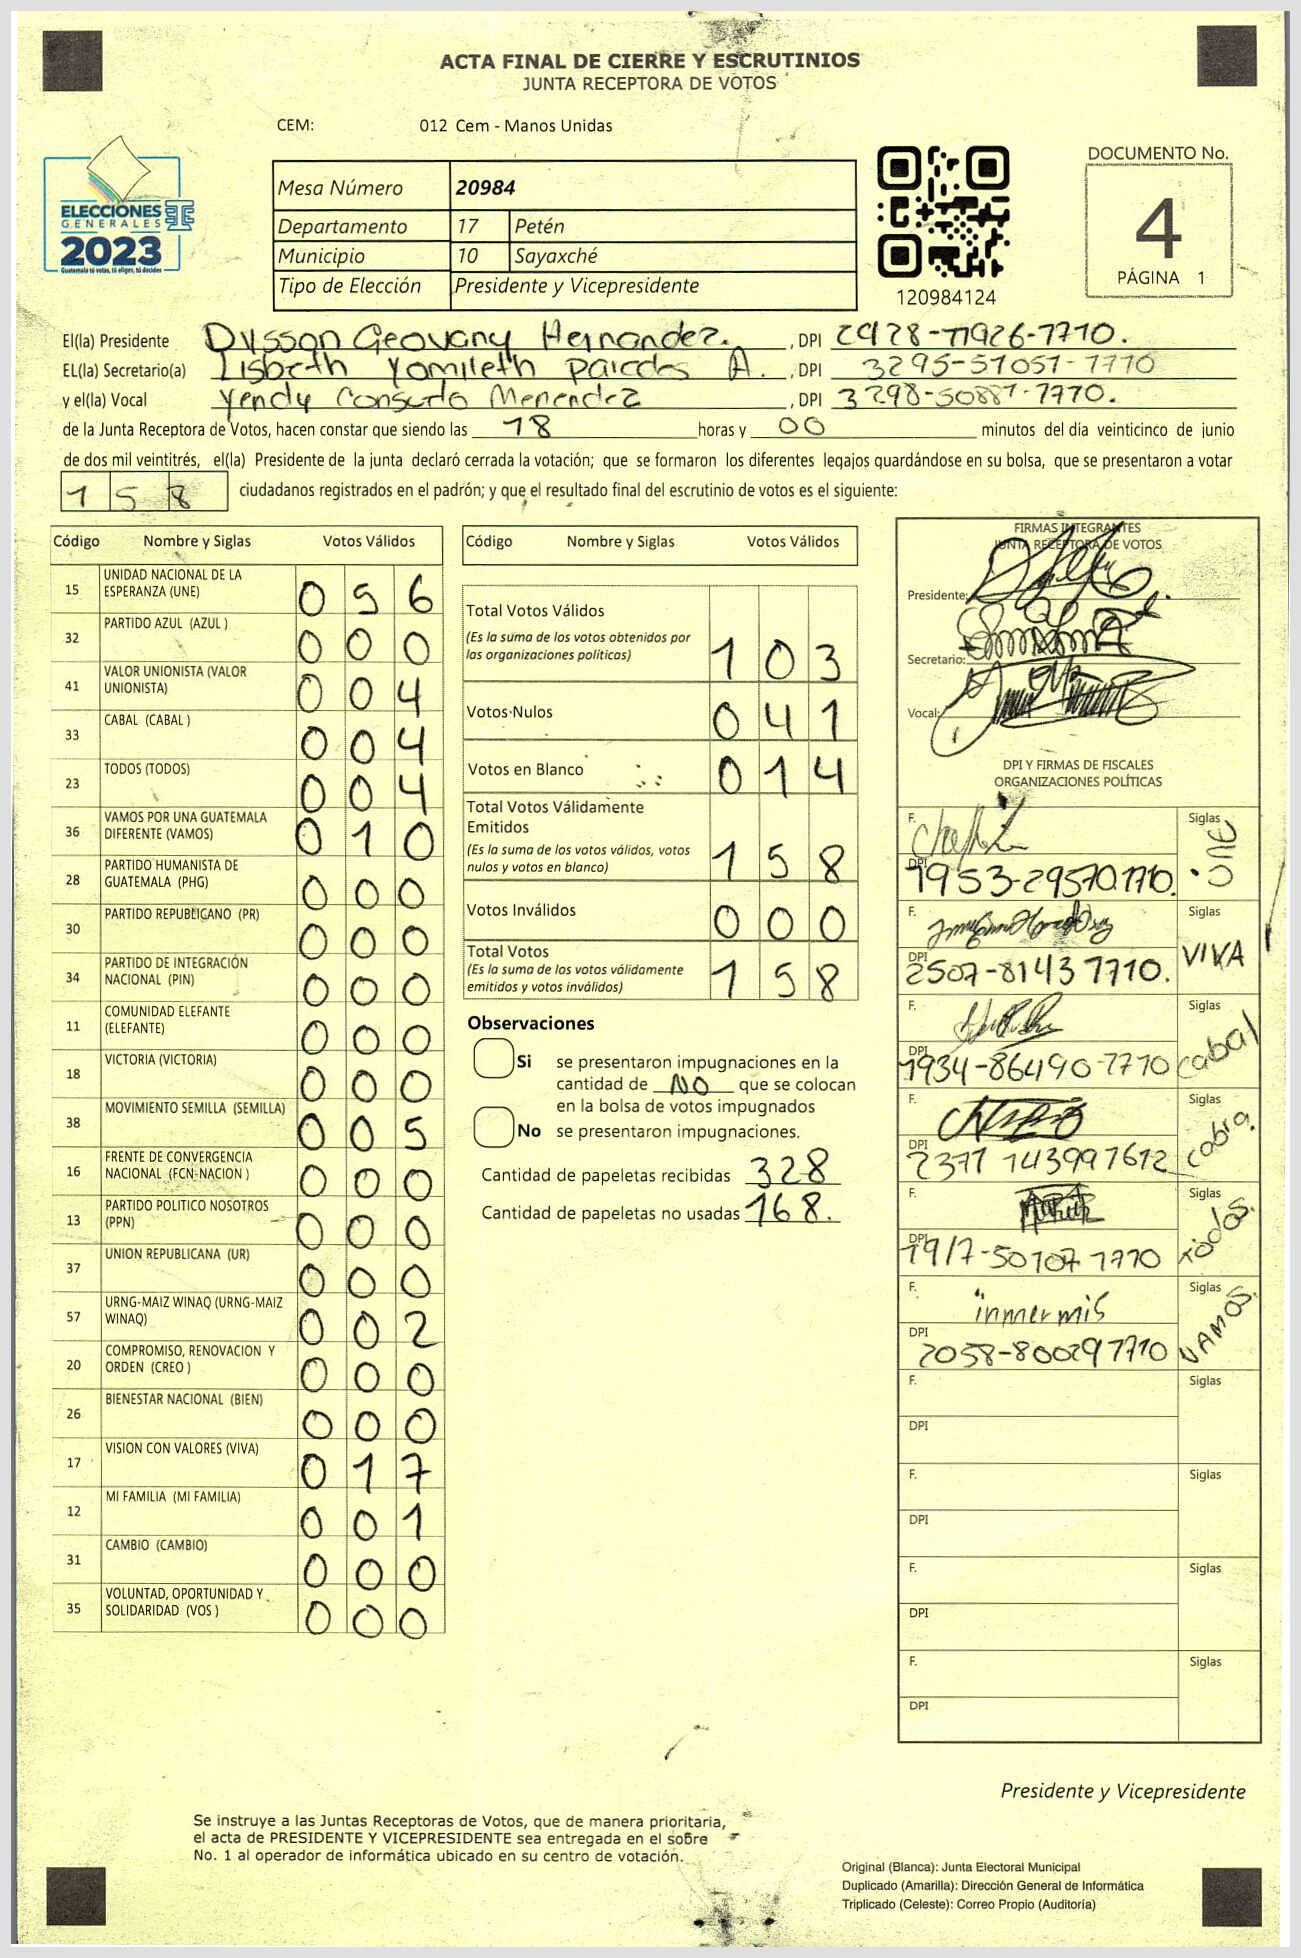 ACTA FINAL DE CIERRE Y ESCRUTINIOS
JUNTA RECEPTORA DE VOTOS
CEM: 012 Cem - Manos Unidas
ELECCIONES
GENERALES
2023
Guatemala tú votas, tú eliges, tú decides
Mesa Número 20984
Departamento 17 Petén
Municipio 10 Sayaxché
Tipo de Elección Presidente y Vicepresidente
120984124
DOCUMENTO No.
4
PÁGINA 1
El(la) Presidente Dysson Geovany Hernandez. , DPI 2928-71926-1710.
EL(la) Secretario(a) Lisbeth Yomileth Paredes A. , DPI 3295-51051-1710
y el(la) Vocal Yendy Consuelo Menendez , DPI 3298-50881-1710.
de la Junta Receptora de Votos, hacen constar que siendo las 18 horas y 00 minutos del día veinticinco de junio
de dos mil veintitrés, el(la) Presidente de la junta declaró cerrada la votación; que se formaron los diferentes legajos guardándose en su bolsa, que se presentaron a votar
158 ciudadanos registrados en el padrón; y que el resultado final del escrutinio de votos es el siguiente:
Código Nombre y Siglas Votos Válidos
15 UNIDAD NACIONAL DE LA ESPERANZA (UNE) 056
32 PARTIDO AZUL (AZUL ) 000
41 VALOR UNIONISTA (VALOR UNIONISTA) 004
33 CABAL (CABAL ) 004
23 TODOS (TODOS) 004
36 VAMOS POR UNA GUATEMALA DIFERENTE (VAMOS) 010
28 PARTIDO HUMANISTA DE GUATEMALA (PHG) 000
30 PARTIDO REPUBLICANO (PR) 000
34 PARTIDO DE INTEGRACIÓN NACIONAL (PIN) 000
11 COMUNIDAD ELEFANTE (ELEFANTE) 000
18 VICTORIA (VICTORIA) 000
38 MOVIMIENTO SEMILLA (SEMILLA) 005
16 FRENTE DE CONVERGENCIA NACIONAL (FCN-NACION ) 000
13 PARTIDO POLITICO NOSOTROS (PPN) 000
37 UNION REPUBLICANA (UR) 000
57 URNG-MAIZ WINAQ (URNG-MAIZ WINAQ) 002
20 COMPROMISO, RENOVACION Y ORDEN (CREO ) 000
26 BIENESTAR NACIONAL (BIEN) 000
17 VISION CON VALORES (VIVA) 017
12 MI FAMILIA (MI FAMILIA) 001
31 CAMBIO (CAMBIO) 000
35 VOLUNTAD, OPORTUNIDAD Y SOLIDARIDAD (VOS ) 000
Código Nombre y Siglas Votos Válidos
Total Votos Válidos
(Es la suma de los votos obtenidos por
las organizaciones políticas) 103
Votos Nulos 041
Votos en Blanco 014
Total Votos Válidamente
Emitidos
(Es la suma de los votos válidos, votos
nulos y votos en blanco) 158
Votos Inválidos 000
Total Votos
(Es la suma de los votos válidamente
emitidos y votos inválidos) 158
Observaciones
Si se presentaron impugnaciones en la
cantidad de NO que se colocan
en la bolsa de votos impugnados
No se presentaron impugnaciones.
Cantidad de papeletas recibidas 328
Cantidad de papeletas no usadas 168.
FIRMAS INTEGRANTES
JUNTA RECEPTORA DE VOTOS
Presidente:
Secretario:
Vocal:
DPI Y FIRMAS DE FISCALES
ORGANIZACIONES POLÍTICAS
F. Siglas UNE
DPI 1953-29570.1710.
F. Siglas VIVA
DPI 2507-81143 1710.
F. Siglas Cabal
DPI 1934-86490-1710
F. Siglas Cabra.
DPI 2371 143991612
F. Siglas Todos.
DPI 1917-50107 1710
F. inmermis Siglas VAMOS.
DPI 2058-80029 1710
F. Siglas
DPI
F. Siglas
DPI
F. Siglas
DPI
F. Siglas
DPI
Presidente y Vicepresidente
Se instruye a las Juntas Receptoras de Votos, que de manera prioritaria,
el acta de PRESIDENTE Y VICEPRESIDENTE sea entregada en el sobre
No. 1 al operador de informática ubicado en su centro de votación.
Original (Blanca): Junta Electoral Municipal
Duplicado (Amarilla): Dirección General de Informática
Triplicado (Celeste): Correo Propio (Auditoría)